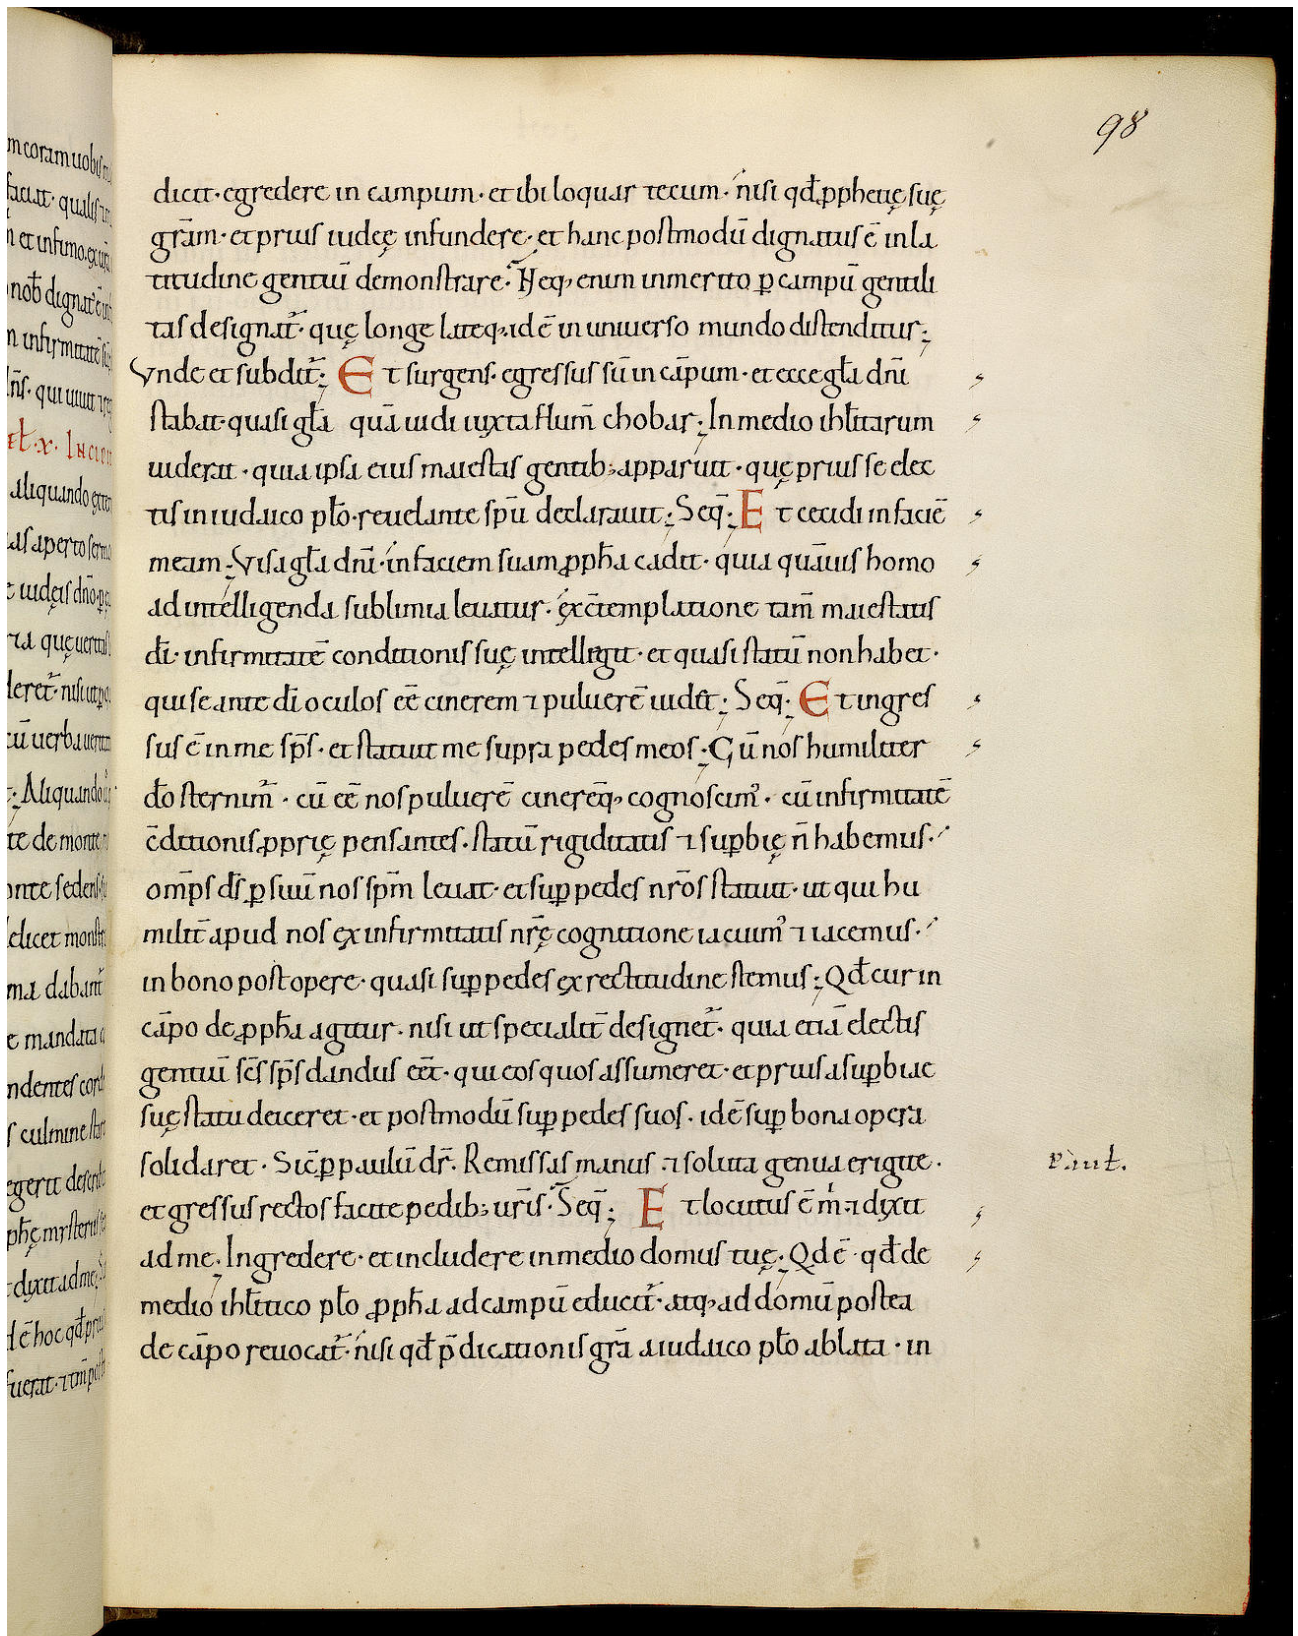 98
dicit· egredere in campum· et ibi loquar tecum· nisi qđ ꝓphetię suę
grām· et prius iudeę infundere· et hanc postmodū dignatus ē in la
titudine gentiū demonstrare· Neq; enim inmerito ꝑ campū gentili
tas designat̄· quę longe lateq; id ē in uniuerso mundo distenditur;
Vnde et subdit̄; Et surgens· egressus sū in cāpum· et ecce gła dn̄i
stabat· quasi gła quā uidi iuxta flum̄ chobar; In medio ihłitarum
uiderat· quia ipsa eius maiestas gentib; apparuit· quę prius se elec
tis in iudaico pło· reuelante sp̄u declarauit; Seq̄; Et cecidi in faciē
meam; Visa gła dn̄i· in faciem suam ꝓpħa cadit· quia quāuis homo
ad intelligenda sublimia leuatur· ex c̄templatione tam̄ maiestatis
dī· infirmitatē conditionis suę intellegit· et quasi statū non habet·
qui se ante dī oculos eē cinerem ⁊ puluerē uidet; Seq̄; Et ingres
sus ē in me sp̄s· et statuit me supra pedes meos; Cū nos humiliter
d̄o sternim̄· cū eē nos puluerē cinerēq; cognoscim᾽· cū infirmitatē
c̄ditionis ꝓprię pensantes· statū rigiditatis ⁊ suꝑbię n̄ habemus·
omp̄s d̄s ꝑ suū nos sp̄m leuat· et suꝑ pedes nr̄os statuit· ut qui hu
milit̄ apud nos ex infirmitatis nr̄ę cognitione iacuim᾽ ⁊ iacemus·
in bono post opere· quasi suꝑ pedes ex rectitudine stemus; Qđ cur in
cāpo de ꝓpħa agitur· nisi ut specialit̄ designet̄· quia etiā electis
gentiū sc̄s sp̄s dandus eēt· qui eos quos assumeret· et prius a suꝑbiae
suę statu deiceret· et postmodū suꝑ pedes suos· id ē suꝑ bona opera
solidaret· Sic̄ ꝑ paulū dr̄· Remissas manus ⁊ soluta genua erigite·
Paul̄.
et gressus rectos facite pedib; ur̄is· Seq̄; Et locutus ē m̄ ⁊ dixit
ad me; Ingredere· et includere in medio domus tuę; Qd ē· qđ de
medio ihłitico pło ꝓpħa ad campū educit̄· atq; ad domū postea
de cāpo reuocat̄· nisi qđ p̄dicationis grā a iudaico pło ablata· in